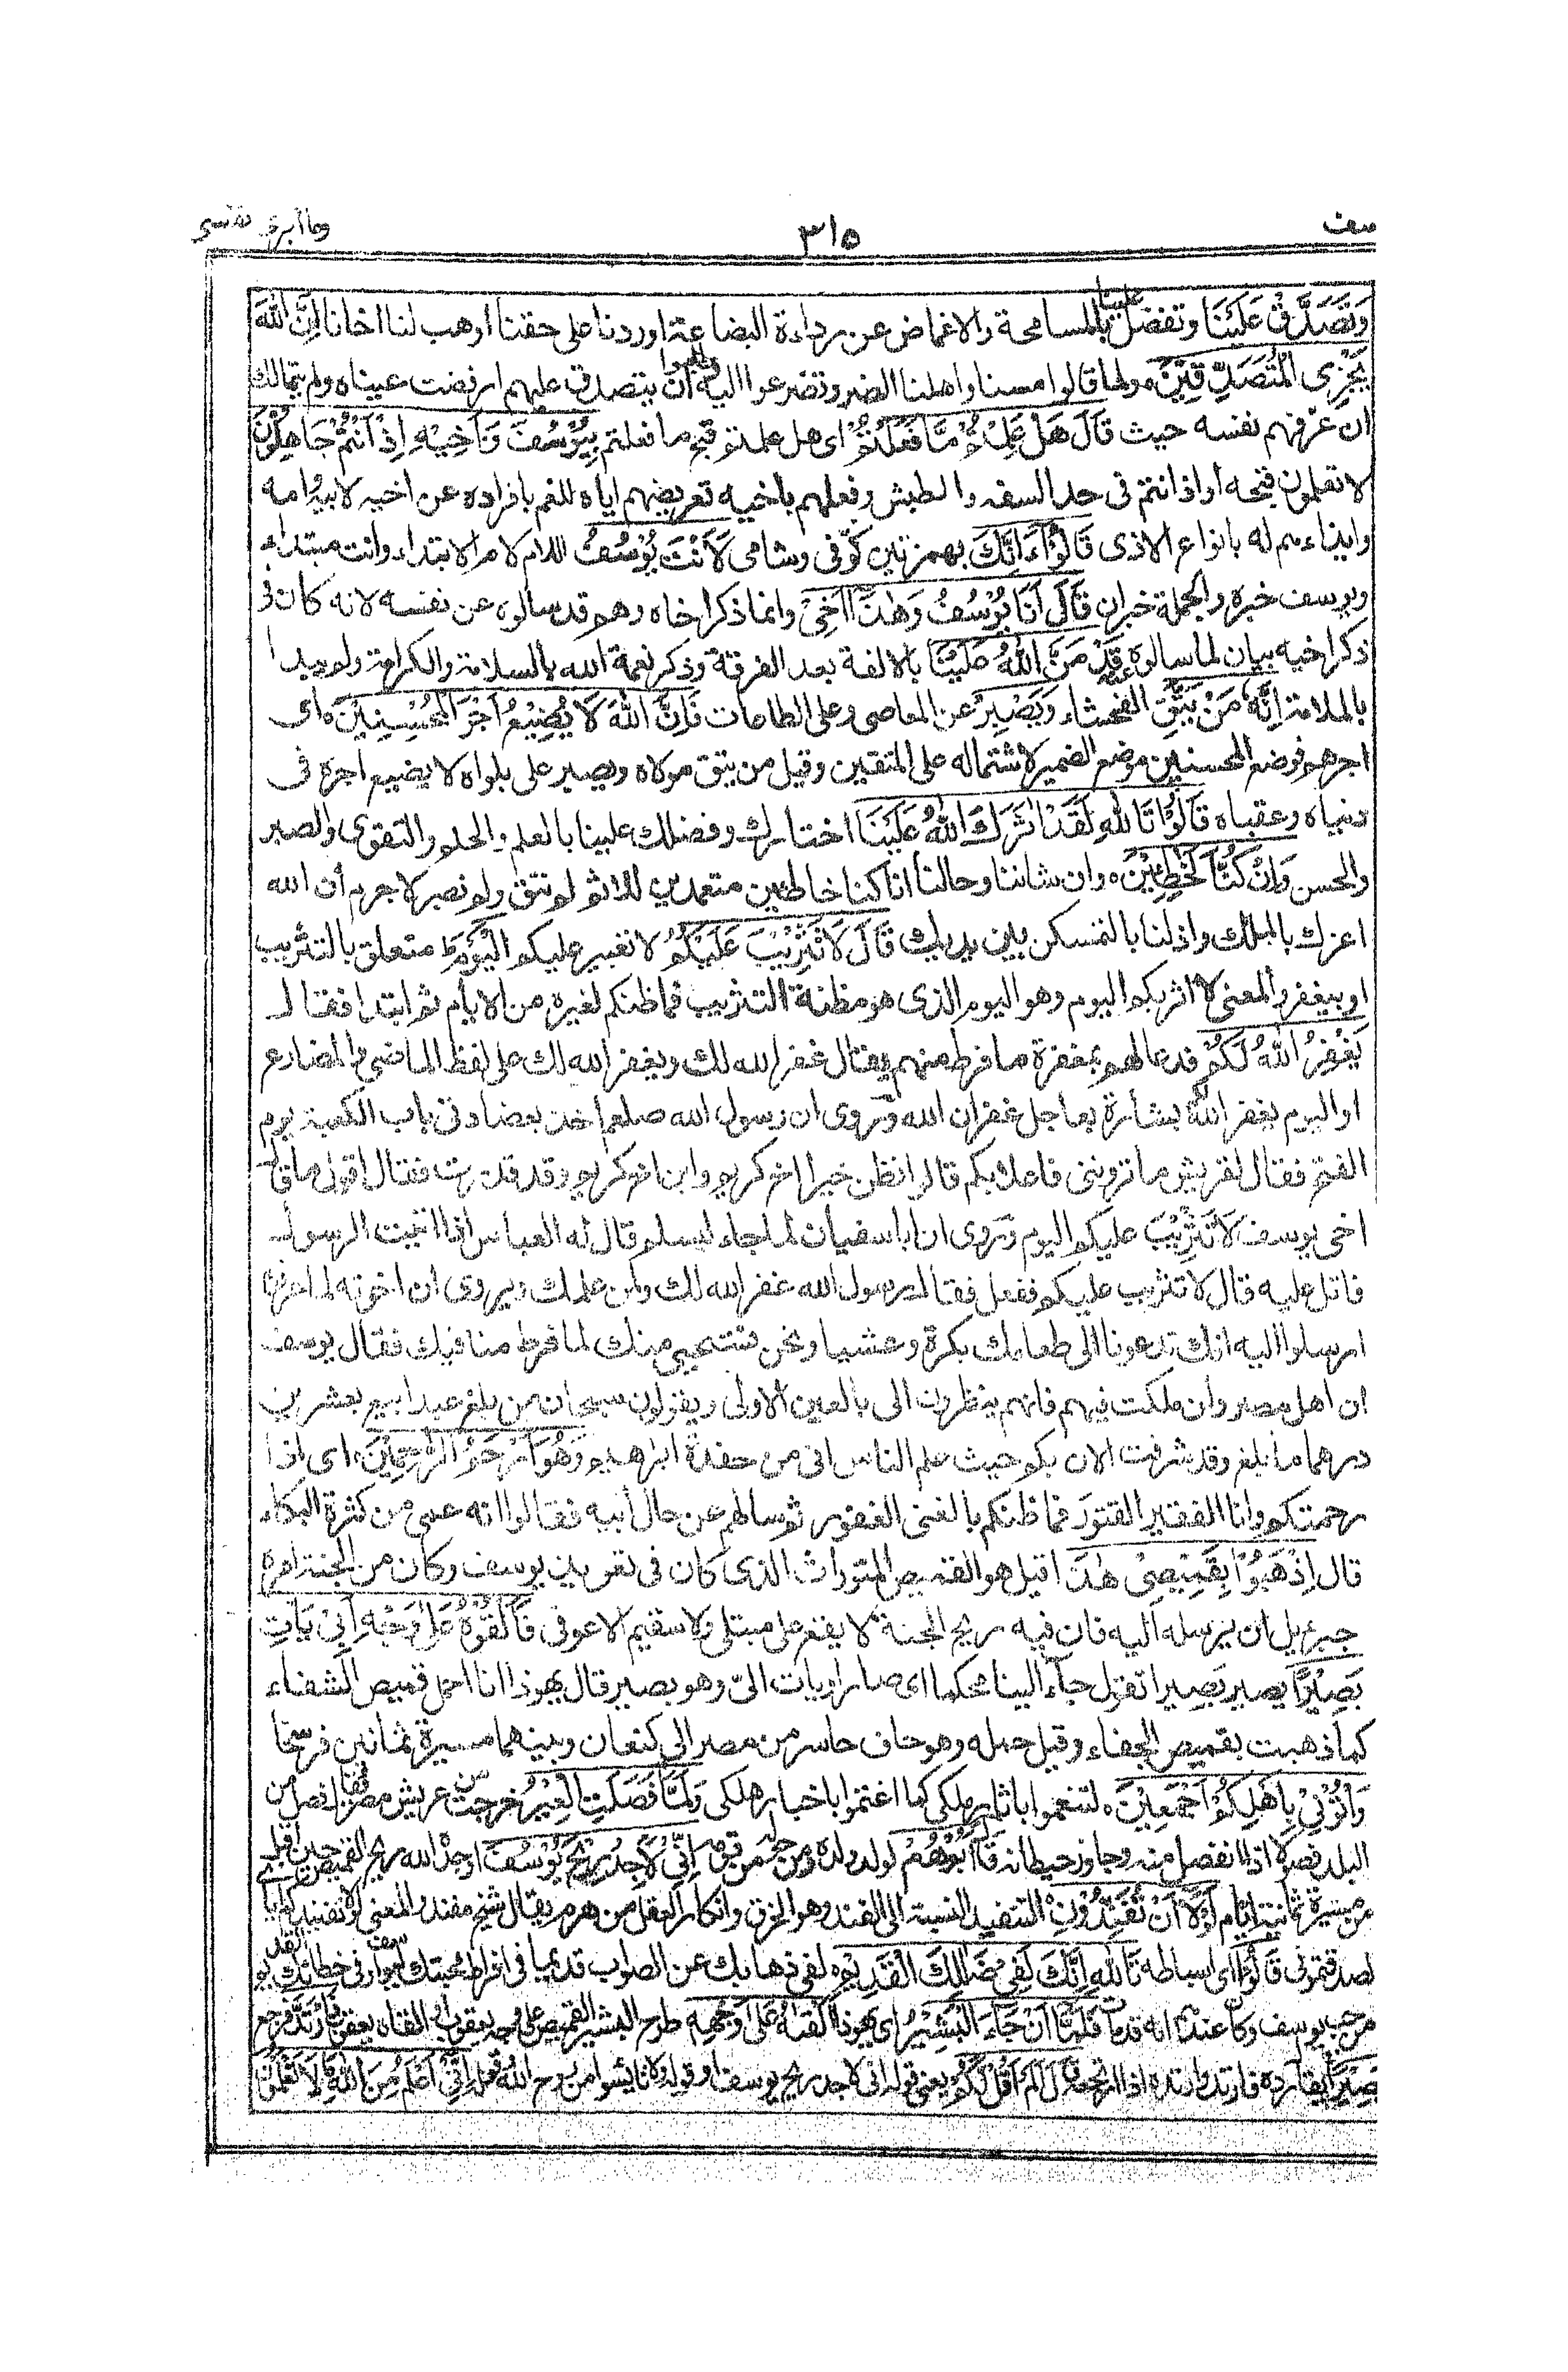 وما أبرئ نفسي
٣١٥
سف
وَتَصَدَّقْ عَلَيْنَا وتفضل علينا بالمسامحة والاغماض عن رداءة البضاعة او ردنا على حقنا أو هب لنا اخانا اِنَّ اللهَ
يَجْزِي الْمُتَصَدِّقِيْنَ ولما قالوا مسنا واهلنا الضر وتضرعوا اليه وطلبوا أن يتصدق عليهم ارفضت عيناه ولم يتمالك
ان عرّفهم نفسه حيث قَالَ هَلْ عَلِمْتُمْ مَّا فَعَلْتُمْ اى هل علمتم قبح ما فعلتم بِيُوْسُفَ وَاَخِيْهِ اِذْ اَنْتُمْ جَاهِلُوْنَ
لا تعلمون قبحه أو اذ انتم فى حد السفه والطيش وفعلهم باخيه تعريضهم اياه للغم بافراده عن اخيه لابيه وامه
وايذاءهم له بانواع الاذى قَالُوْا ءَاِنَّكَ بهمزتين كوفى وشامى لَاَنْتَ يُوْسُفُ اللام لام الابتداء وانت مبتداء
ويوسف خبره والجملة خبر ان قَالَ اَنَا يُوْسُفُ وَهٰذَا اَخِىْ وانما ذكر اخاه وهم قد سالوه عن نفسه لانه كان فى
ذكر اخيه بيان لما سالوه عنه قَدْ مَنَّ اللهُ عَلَيْنَا بالالفة بعد الفرقة وذكر نعمة الله بالسلامة والكرامة ولم يبدا
بالملامة اِنَّهٗ مَنْ يَتَّقِ الفحشاء وَيَصْبِرْ عن المعاصى وعلى الطاعات فَاِنَّ اللهَ لَا يُضِيْعُ اَجْرَ الْمُحْسِنِيْنَ اى
اجرهم فوضع المحسنين موضع الضمير لاشتماله على المتقين وقيل من يتق مولاه ويصبر على بلواه لا يضيع اجره فى
دنياه وعقباه قَالُوْا تَاللهِ لَقَدْ اٰثَرَكَ اللهُ عَلَيْنَا اختارك وفضلك علينا بالعلم والحلم والتقوى والصبر
والحسن وَاِنْ كُنَّا لَخٰطِئِيْنَ وان شاننا وحالنا انا كنا خاطئين متعمدين للاثم لم نتق ولم نصبر لا جرم أن الله
اعزك بالملك واذلنا بالتمسكن بين يديك قَالَ لَا تَثْرِيْبَ عَلَيْكُمُ لا تعيير عليكم الْيَوْمَ متعلق بالتثريب
او بيغفر والمعنى لا اثربكم اليوم وهو اليوم الذى هو مظنة التثريب فما ظنكم لغيره من الايام ثم ابتدا فقال
يَغْفِرُ اللهُ لَكُمْ فدعا لهم بمغفرة ما فرط منهم يقال غفر الله لك ويغفر الله لك على لفظ الماضى والمضارع
او اليوم يغفر الله لكم بشارة بعاجل غفران الله وروى ان رسول الله صلعم اخذ بعضادتى باب الكعبة يوم
الفتح فقال لقريش ما ترونى فاعلا بكم قالوا نظن خيرا اخ كريم وابن اخ كريم وقد قدرت فقال اقول ما قال
اخى يوسف لَا تَثْرِيْبَ عليكم اليوم وروى ان ابا سفيان لما جاء ليسلم قال له العباس اذا اتيت الرسول
فاتل عليه قال لا تثريب عليكم ففعل فقال رسول الله غفر الله لك ولمن علمك ويروى ان اخوته لما عرفوه
ارسلوا اليه انك تدعونا الى طعامك بكرة وعشيا ونحن نستحيى منك لما فرط منا فيك فقال يوسف
ان اهل مصر وان ملكت فيهم فانهم ينظرون الى بالعين الاولى ويقولون سبحان من بلغ عبدا بيع بعشرين
درهما ما بلغ وقد شرفت الان بكم حيث علم الناس انى من حفدة ابراهيم وَهُوَ اَرْحَمُ الرّٰحِمِيْنَ اى اذا
رحمتكم وانا الفقير القتور فما ظنكم بالغنى الغفور ثم سالهم عن حال أبيه فقالوا انه عمى من كثرة البكاء
قال اِذْهَبُوْا بِقَمِيْصِىْ هٰذَا قيل هو القميص المتوارث الذى كان فى تعويذ يوسف وكان من الجنة امره
جبرئيل ان يرسله اليه فان فيه ريح الجنة لا يقع على مبتلى ولا سقيم الا عوفى فَاَلْقُوْهُ عَلٰى وَجْهِ اَبِىْ يَاْتِ
بَصِيْرًا يصير بَصِيرا تقول جاء البنا محكما اى صار او يات الىّ وهو بصير قال يهوذا انا احمل قميص الشفاء
كما ذهبت بقميص الجفاء وقيل حمله وهو حاف حاسر من مصر الى كنعان وبينهما مسيرة ثمانين فرسخا
وَاْتُوْنِىْ بِاَهْلِكُمْ اَجْمَعِيْنَ لتنعموا باثار ملكى كما اغتموا باخبار هلكى وَلَمَّا فَصَلَتِ الْعِيْرُ خرجت من عريش مصر يقال فصل من
البلد فصولا اذا انفصل منه وجاوز حيطانه قَالَ اَبُوْهُمْ لولد ولده ومن حوله من قومه اِنِّىْ لَاَجِدُ رِيْحَ يُوْسُفَ اوجده الله ريح القميص حين اقبل
من مسيرة ثمانية ايام لَوْلَا اَنْ تُفَنِّدُوْنِ التفنيد النسبة الى الفند وهو الخرق وانكار العقل من هرم يقال شيخ مفند والمعنى لولا تفنيدكم اياى
لصدقتمونى قَالُوْا اى اسباطه تَاللهِ اِنَّكَ لَفِىْ ضَلٰلِكَ الْقَدِيْمِ لفى ذهابك عن الصواب قديما فى افراط محبتك ليوسف او فى خطائك القديم
من حب يوسف وكان عندهم انه قد مات فَلَمَّا اَنْ جَاءَ الْبَشِيْرُ اى يهوذا اَلْقٰىهُ عَلٰى وَجْهِهٖ طرح البشير القميص على وجه يعقوب او القاه يعقوب فَارْتَدَّ فرجع
بَصِيْرًا يقال رده فارتد وارتده اذا ارتجعه قَالَ اَلَمْ اَقُلْ لَّكُمْ يعنى قوله انى لاجد ريح يوسف او قوله ولا تايئسوا من روح الله وقوله اِنِّىْ اَعْلَمُ مِنَ اللهِ مَا لَا تَعْلَمُوْنَ